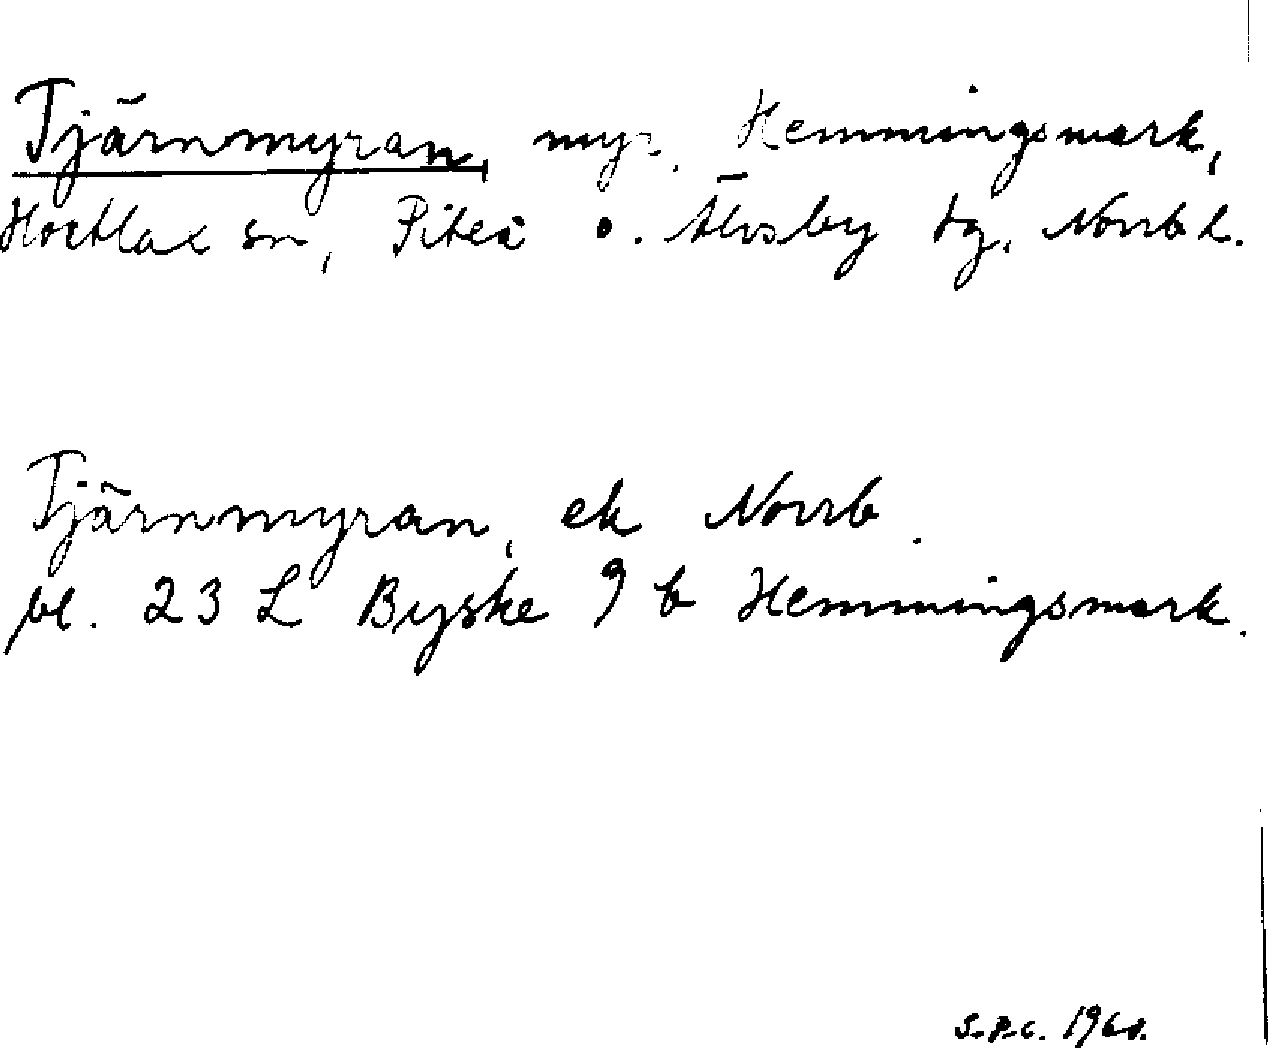 Tjärnmyran, myr, Hemmingsmark,
Hortlax sn, Piteå o. Älvsby tg, Norrb l.
Tjärnmyran, ek Norrb.
bl. 23 L Byske 9 b Hemmingsmark.
S.P.C.